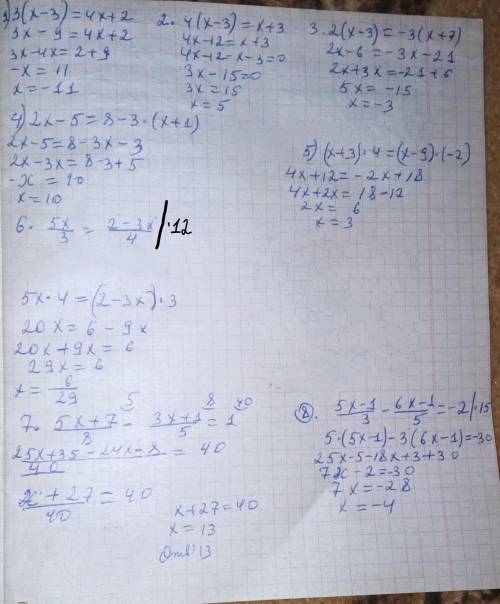 1) 3(x-3)=4x+2
3x-9=4x+2
3x-4x=2+9
-x=11
x=-11
2. 4(x-3)=x+3
4x-12=x+3
4x-12-x-3=0
3x-15=0
3x=15
x=5
3. 2(x-3)=-3(x+7)
2x-6=-3x-21
2x+3x=-21+6
5x=-15
x=-3
4) 2x-5=8-3·(x+1)
2x-5=8-3x-3
2x-3x=8-3+5
-x=10
x=10
5) (x+3)·4=(x-9)·(-2)
4x+12=-2x+18
4x+2x=18-12
2x=6
x=3
6. 5x/3 = 2-3x/4 |·12
5x·4=(2-3x)·3
20x=6-9x
20x+9x=6
29x=6
x=6/29
7. 5x+7/8 - 3x+1/5 = 1
5 8 40
25x+35-24x-8/40 = 40
x+27/40 = 40
x+27=40
x=13
Отв: 13
8. 5x-1/3 - 6x-1/5 = -2 |·15
5·(5x-1)-3(6x-1)=-30
25x-5-18x+3+30
7x-2=-30
7x=-28
x=-4